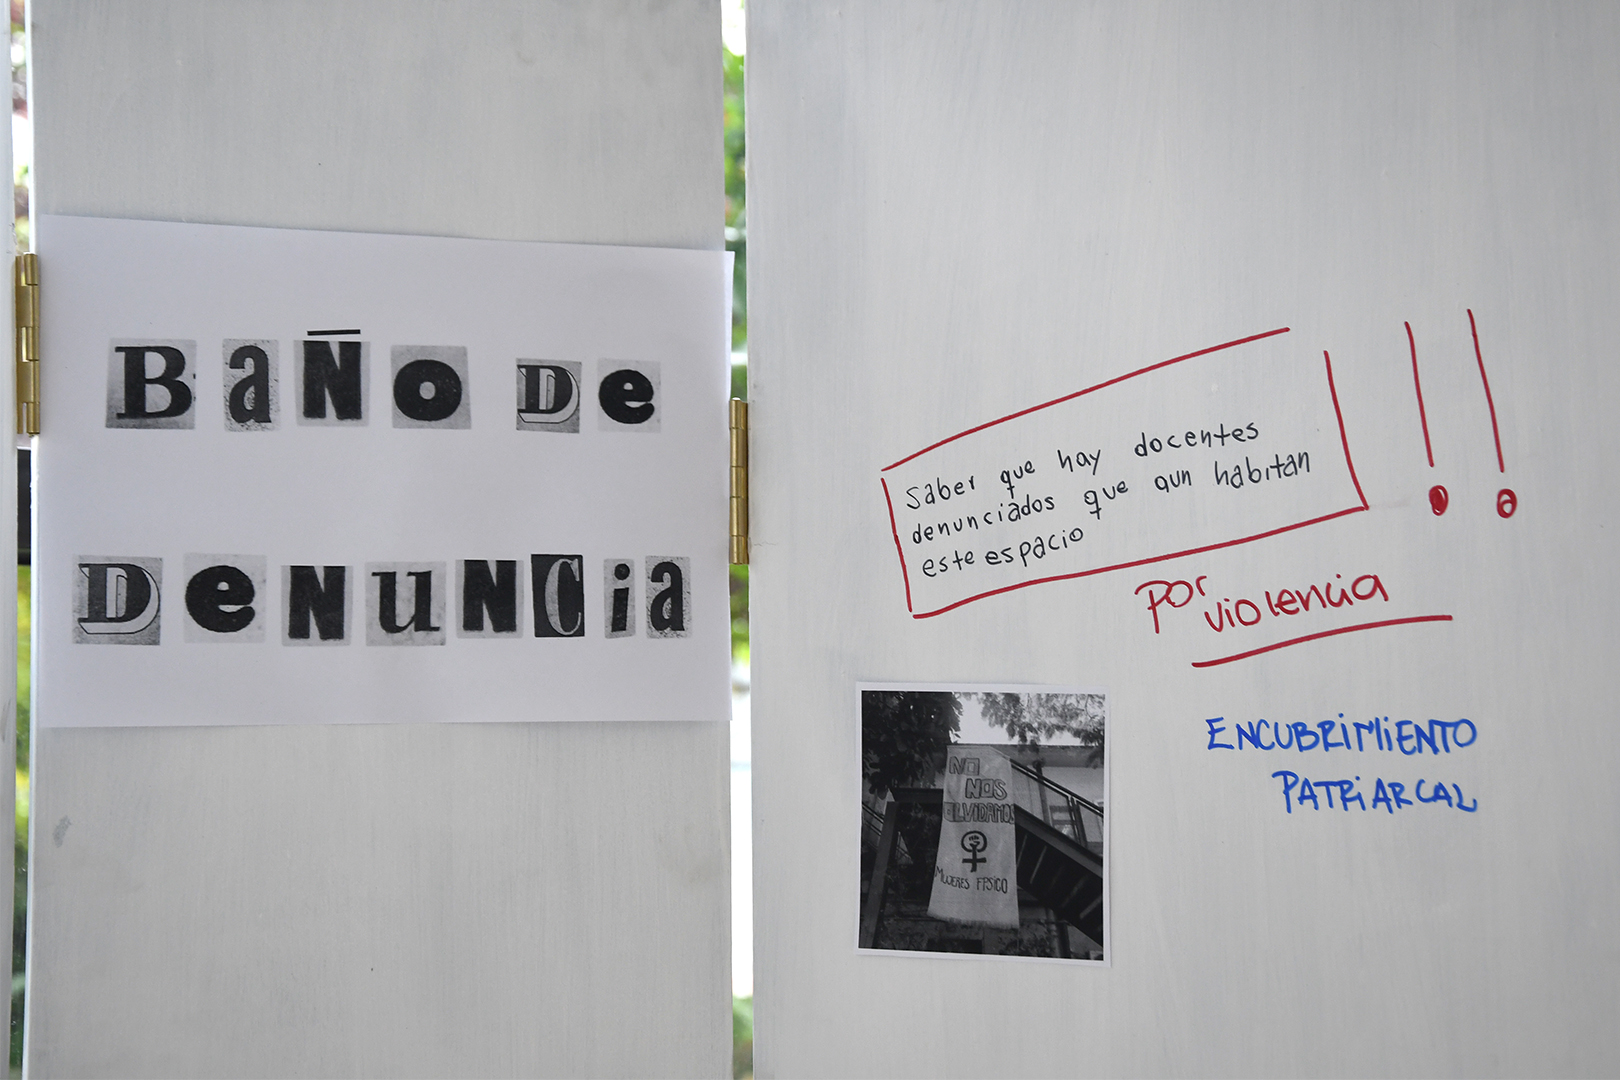 BaÑo De
DeNuNCia
Saber que hay docentes
denunciados que aun habitan
este espacio
!!
Por violencia
ENCUBRIMIENTO
PATRIARCAL
NO
NOS
OLVIDAMOS
MUJERES FPSICO